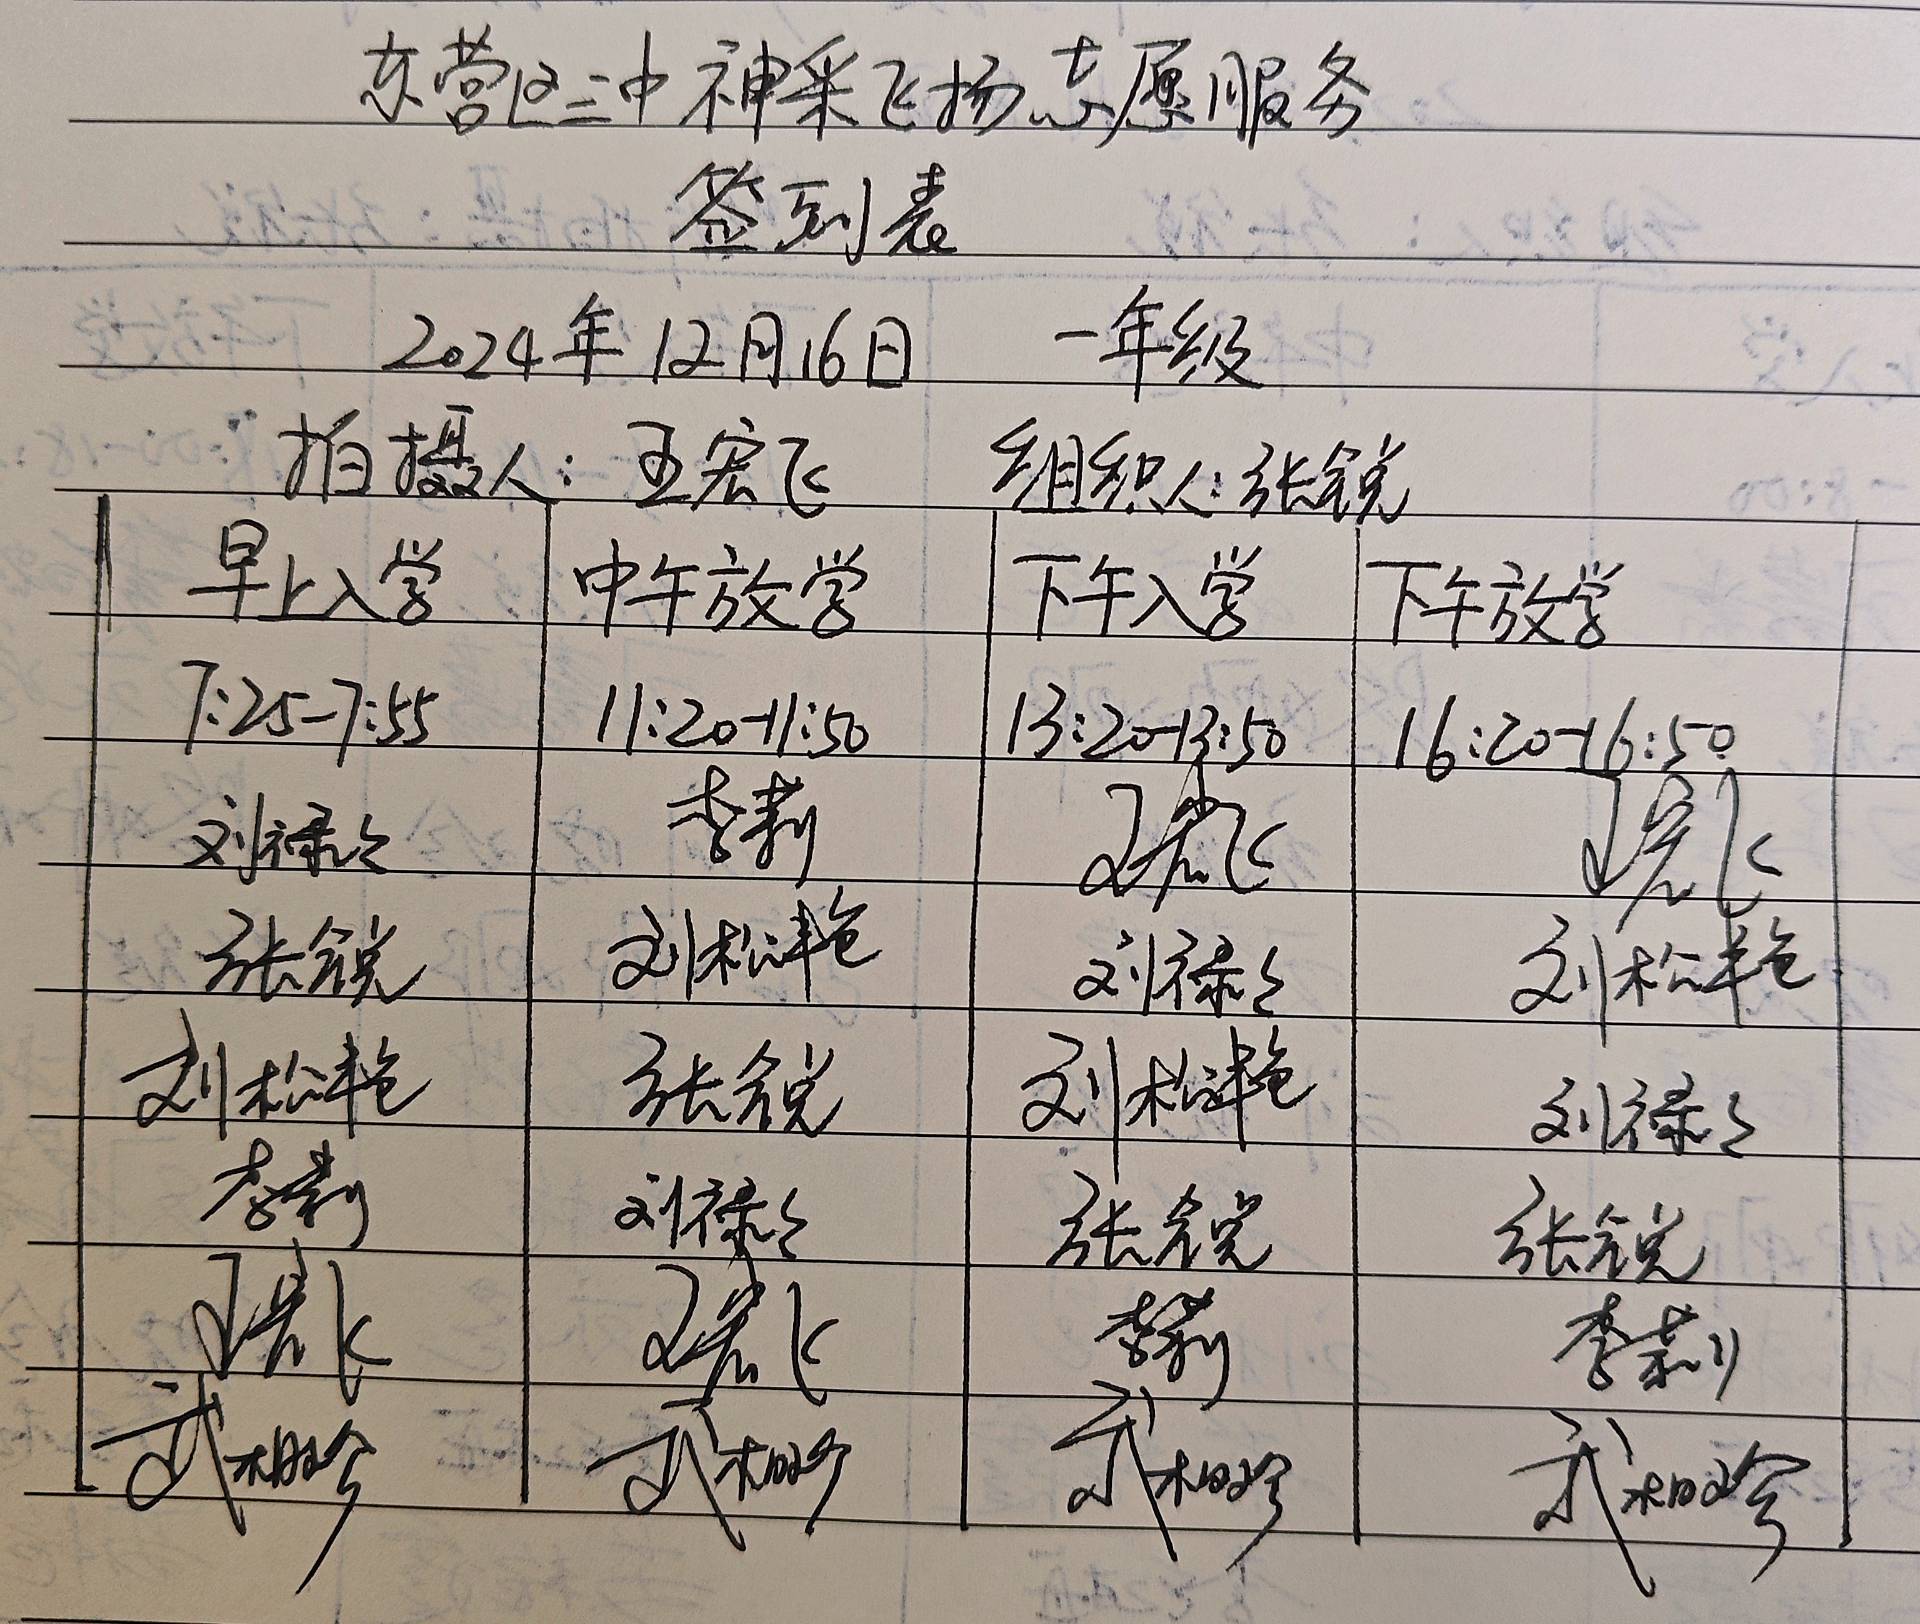 东营区三中神采飞扬志愿服务
签到表
2024年12月16日 一年级
拍摄人：王宏飞 组织人：张锐
早上入学 中午放学 下午入学 下午放学
7:25-7:55 11:20-11:50 13:20-13:50 16:20-16:50
刘禄云 李莉 王宏飞 王宏飞
张锐 刘松艳 刘禄云 刘松艳
刘松艳 张锐 刘松艳 刘禄云
李莉 刘禄云 张锐 张锐
王宏飞 王宏飞 李莉 李莉
武相珍 武相珍 武相珍 武相珍